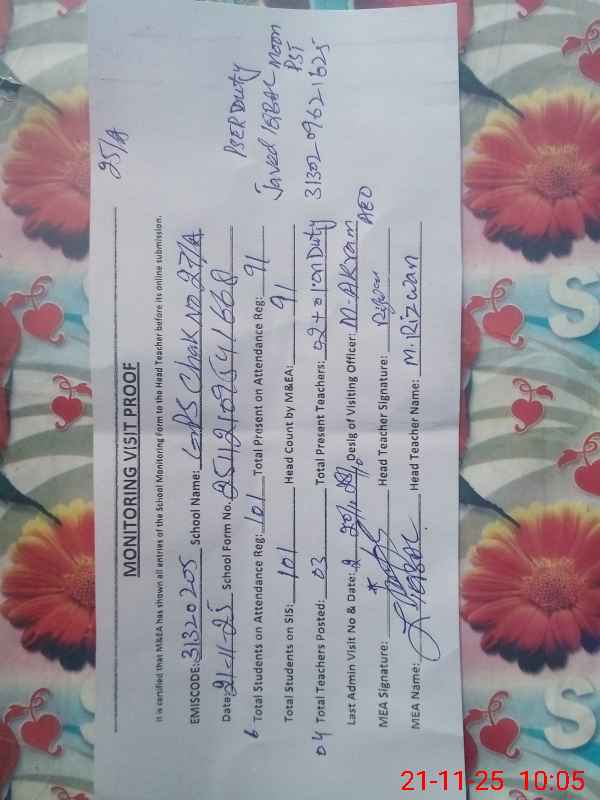 25/A
MONITORING VISIT PROOF
It is certified that M&EA has shown all entries of the School Monitoring Form to the Head Teacher before its online submission.
EMISCODE: 31320205 School Name: GPS Chak No 27/A
Date: 21-11-25 School Form No. 2511210954/1668
6 Total Students on Attendance Reg: 101 Total Present on Attendance Reg: 91
Total Students on SIS: 101 Head Count by M&EA: 91
04 Total Teachers Posted: 03 Total Present Teachers: 02+01 on Duty
Last Admin Visit No & Date: 2 Desig of Visiting Officer: M-AKram AEO
MEA Signature: Head Teacher Signature: Rizwan
MEA Name: IQBAL Head Teacher Name: M. Rizwan
PSER Duty
Javed IQBAL Moon
PST
31302 0962 1625
21-11-25 10:05